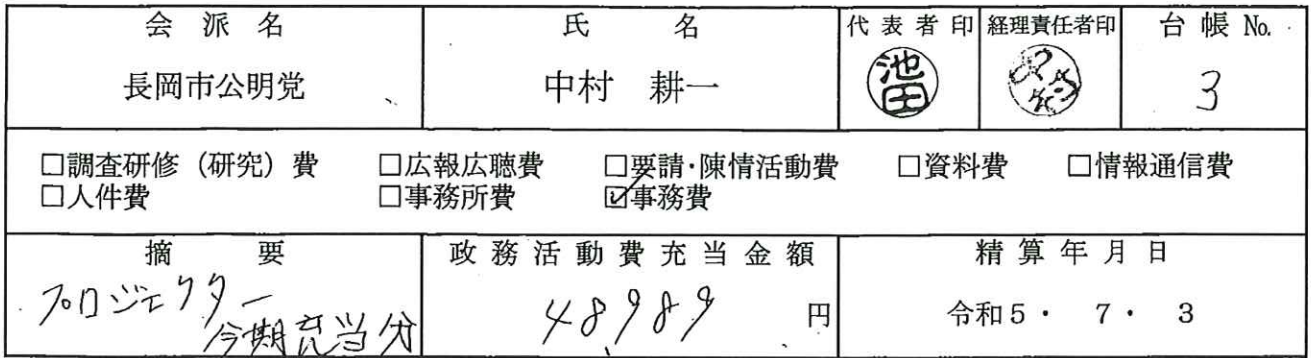 会派名 氏名 代表者印 経理責任者印 台帳No.
長岡市公明党 中村 耕一 池田 3
□調査研修（研究）費 □広報広聴費 □要請・陳情活動費 □資料費 □情報通信費
□人件費 □事務所費 ☑事務費
摘要 政務活動費充当金額 精算年月日
プロジェクター
今期充当分 48,989 円 令和5・ 7・ 3